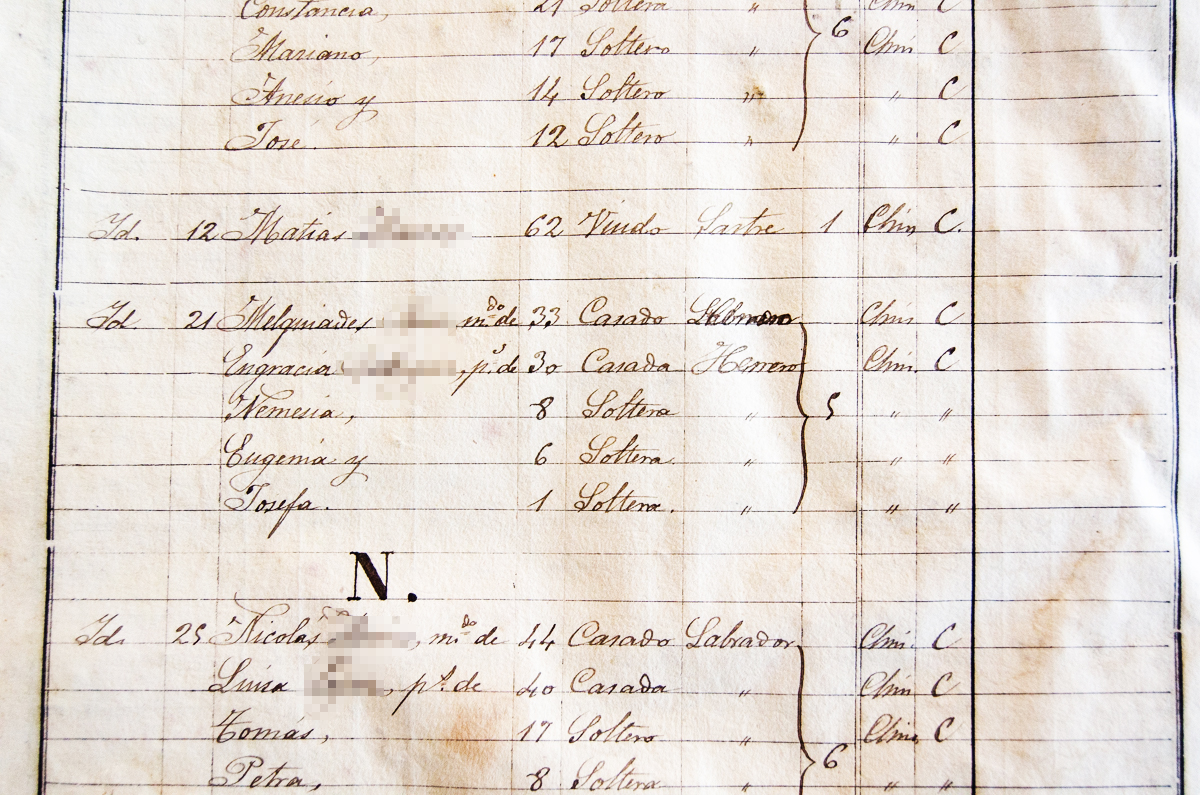 Constancia, 21 Soltera " Chin C
Mariano, 17 Soltero " 6 Chin C
Anesio y 14 Soltero " " C
José. 12 Soltero " " C
Id. 12 Matias 62 Viudo Sastre 1 Chin C.
Id 21 Melquiades m.do de 33 Casado Chin C
Engracia , p.s de 30 Casada Herrero Chin. C
Nemesia, 8 Soltera " 5 " "
Eugenia y 6 Soltera. " " "
Josefa. 1 Soltera. " " "
N.
Id. 25 Nicolás , m.do de 44 Casado Labrador Chin. C
Luisa , p.s de 40 Casada " Chin C
Tomás, 17 Soltero " Chin. C
Petra, 8 Soltera " 6 " "